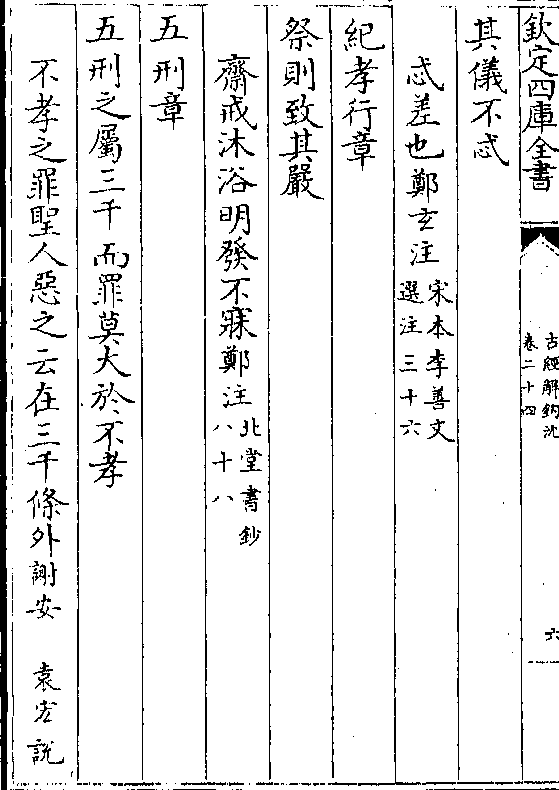 欽定四庫全書
古經解鈎沈
卷二十四
六
其儀不忒
忒差也鄭玄注宋本李善文選注三十六
紀孝行章
祭則致其嚴
齋戒沐浴明發不寐鄭注北堂書鈔八十八
五刑章
五刑之屬三千而罪莫大於不孝
不孝之罪聖人惡之云在三千條外謝安 袁宏說